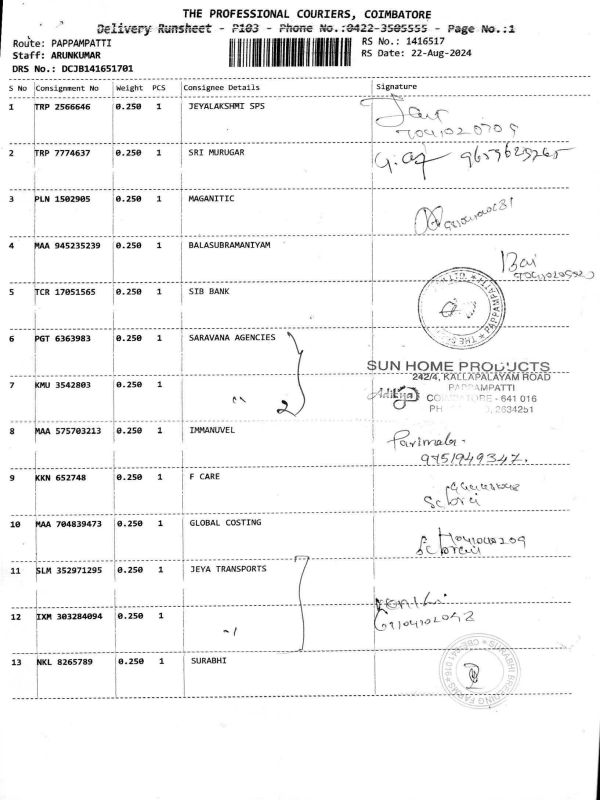 THE PROFESSIONAL COURIERS, COIMBATORE
Delivery Runsheet - P103 - Phone No.:0422-3505555 - Page No.:1
Route: PAPPAMPATTI
Staff: ARUNKUMAR
DRS No.: DCJB141651701
RS No.: 1416517
RS Date: 22-Aug-2024
S No Consignment No Weight PCS Consignee Details Signature
1 TRP 2566646 0.250 1 JEYALAKSHMI SPS
2 TRP 7774637 0.250 1 SRI MURUGAR
3 PLN 1502905 0.250 1 MAGANITIC
4 MAA 945235239 0.250 1 BALASUBRAMANIYAM
5 TCR 17051565 0.250 1 SIB BANK
6 PGT 6363983 0.250 1 SARAVANA AGENCIES
SUN HOME PRODUCTS
242/4, KALLAPALAYAM ROAD
PAPPAMPATTI
COIMBATORE - 641 016
2634251
7 KMU 3542803 0.250 1
2
8 MAA 575703213 0.250 1 IMMANUVEL
9751949347.
9 KKN 652748 0.250 1 F CARE
10 MAA 704839473 0.250 1 GLOBAL COSTING
11 SLM 352971295 0.250 1 JEYA TRANSPORTS
12 IXM 303284094 0.250 1
13 NKL 8265789 0.250 1 SURABHI